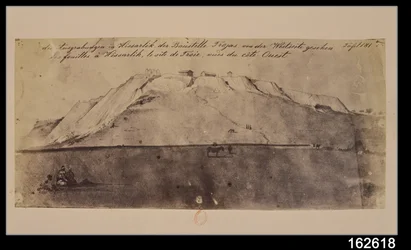 die Ausgrabungen in Hissarlik, der Baustelle Trojas von der Westseite gesehen
Les fouilles à Hissarlik, le site de Troie, vues du côté Ouest.
162618